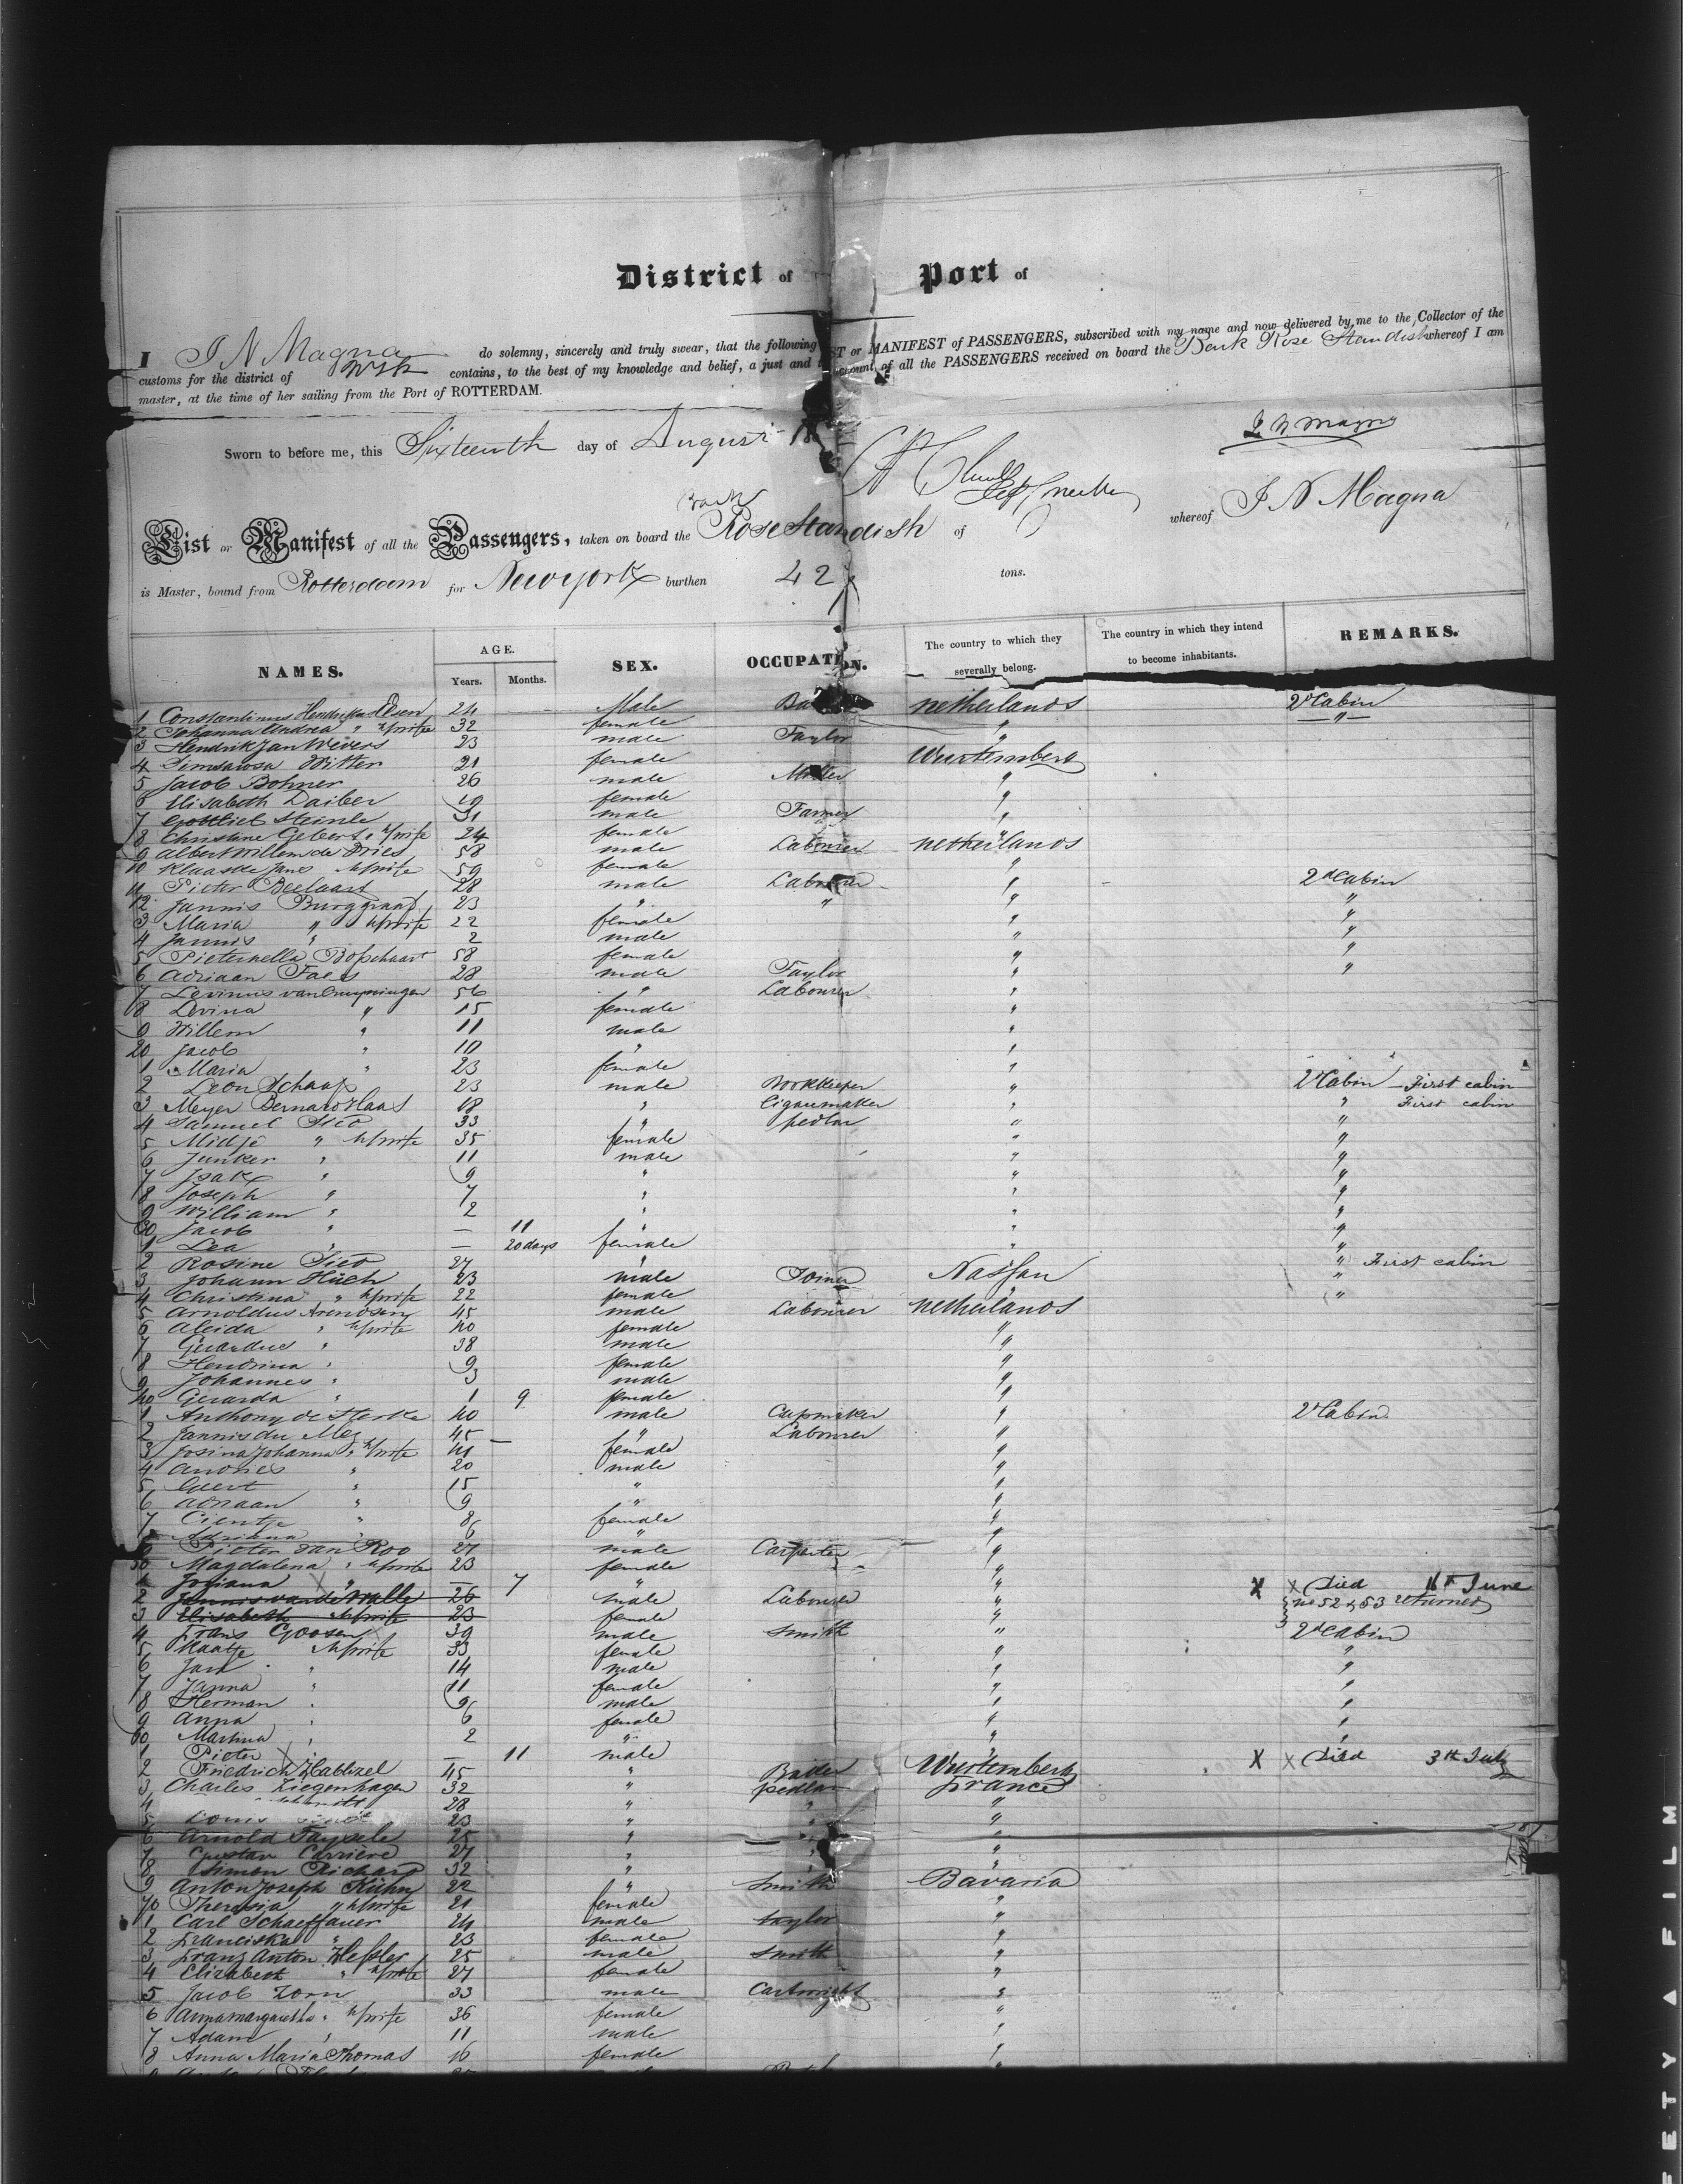 District of Port of
I J N Magna do solemny, sincerely and truly swear, that the following LIST or MANIFEST of PASSENGERS, subscribed with my name and now delivered by me to the Collector of the
customs for the district of contains, to the best of my knowledge and belief, a just and account of all the PASSENGERS received on board the Bark Rose Standish whereof I am
master, at the time of her sailing from the Port of ROTTERDAM.
J N Magna
Sworn to before me, this Sixteenth day of August
Bark
List or Manifest of all the Passengers, taken on board the Rose Standish of whereof J N Magna
is Master, bound from Rotterdam for New york burthen 42 tons.
NAMES. AGE. SEX. OCCUPATION. The country to which they severally belong. The country in which they intend to become inhabitants. REMARKS.
Years. Months.
1 Constantinus Hendrikus Elsen 24 Male netherlands 2d Cabin
2 Johanna Andrea " h/wife 32 female " "
3 Hendrik Jan Wevers 23 male Taylor "
4 Witter 21 female Wurtemberg
5 Jacob Bohner 26 male "
6 Elisabeth Daiber 19 female "
7 Gottlieb Steinle 31 male Farmer "
8 Christine Gebert " h/wife 24 female "
9 Albert Willem de Vries 58 male Labourer netherlands
10 Klaaske Jans h/wife 59 female "
11 Pieter Beelaart 28 male Labourer " 2d Cabin
12 Jannis Burggraaf 23 " " " "
3 Maria " h/wife 22 female " "
4 Jannis " 2 male " "
5 Pieternella Boschaart 58 female " "
6 Adriaan Faes 28 male Taylor " "
7 Levinus van 56 " Labourer "
8 Levina " 15 female "
9 Willem " 11 male "
20 Jacob " 10 " "
1 Maria " 23 female "
2 Leon Schaap 23 male Bookkeeper " 2d Cabin - First cabin
3 Meyer Bernard Haas 18 " Cigarmaker " " First cabin
4 Samuel 33 " pedlar " "
5 Midje " h/wife 35 female " "
6 Junker " 11 male " "
7 Isak " 9 " " "
8 Joseph " 7 " " "
9 William " 2 " " "
30 Jacob " — 11 " " "
1 Lea " — 20 days female " "
2 Rosine 27 " " First cabin
3 Johann Hück 23 male Joiner Nassau "
4 Christina " h/wife 22 female " "
5 Arnoldus Arendsen 45 male Labourer netherlands
6 Aleida " h/wife 40 female "
7 Gerardus " 38 male "
8 Hendrina " 9 female "
9 Johannes " 3 male "
40 Gerarda " 1 9 female "
1 Anthony de Sterke 40 male Capmaker " 2d Cabin
2 Jannis du Mez 45 " Labourer "
3 Josina Johanna " h/wife 41 female "
4 Andries " 20 male "
5 Geert " 15 " "
6 Adriaan " 9 " "
7 Cientje " 8 female "
8 Adriana " 6 " "
9 Pieter van Roo 27 male Carpenter "
50 Magdalena " h/wife 23 female "
1 Josiana " — 7 " " X X Died 16th June
2 Jannis van de Walle 26 male Labourer " no 52 & 53 returned
3 Elisabeth h/wife 23 female "
4 Frans Goosen 39 male Smith " 2d Cabin
5 Maatje h/wife 33 female " "
6 Jan " 14 male " "
7 Janna " 11 female " "
8 Herman " 9 male " "
9 Anna " 6 female " "
60 Martina " 2 " " "
1 Pieter " — 11 male " X X Died 3th July
2 Friedrich Habbizel 45 " Wurtemberg
3 Charles Ziegenhagen 32 " pedlar France
4 Schmitt 28 " " "
5 Louis 23 " "
6 Arnold 25 " "
7 Gustav Carriere 27 " " "
8 Simon Richard 32 " " "
9 Anton Joseph Kühn 22 " Smith Bavaria
70 Theresia " h/wife 21 female "
1 Carl Schaeffauer 24 male taylor "
2 Franciska " 23 female "
3 Franz Anton Hessler 25 male Smith "
4 Elizabeth " h/wife 27 female "
5 Jacob Zorn 33 male Cartwright "
6 Annamargaretha " h/wife 36 female "
7 Adam " 11 male "
8 Anna Maria Thomas 16 female "
ETY A FILM